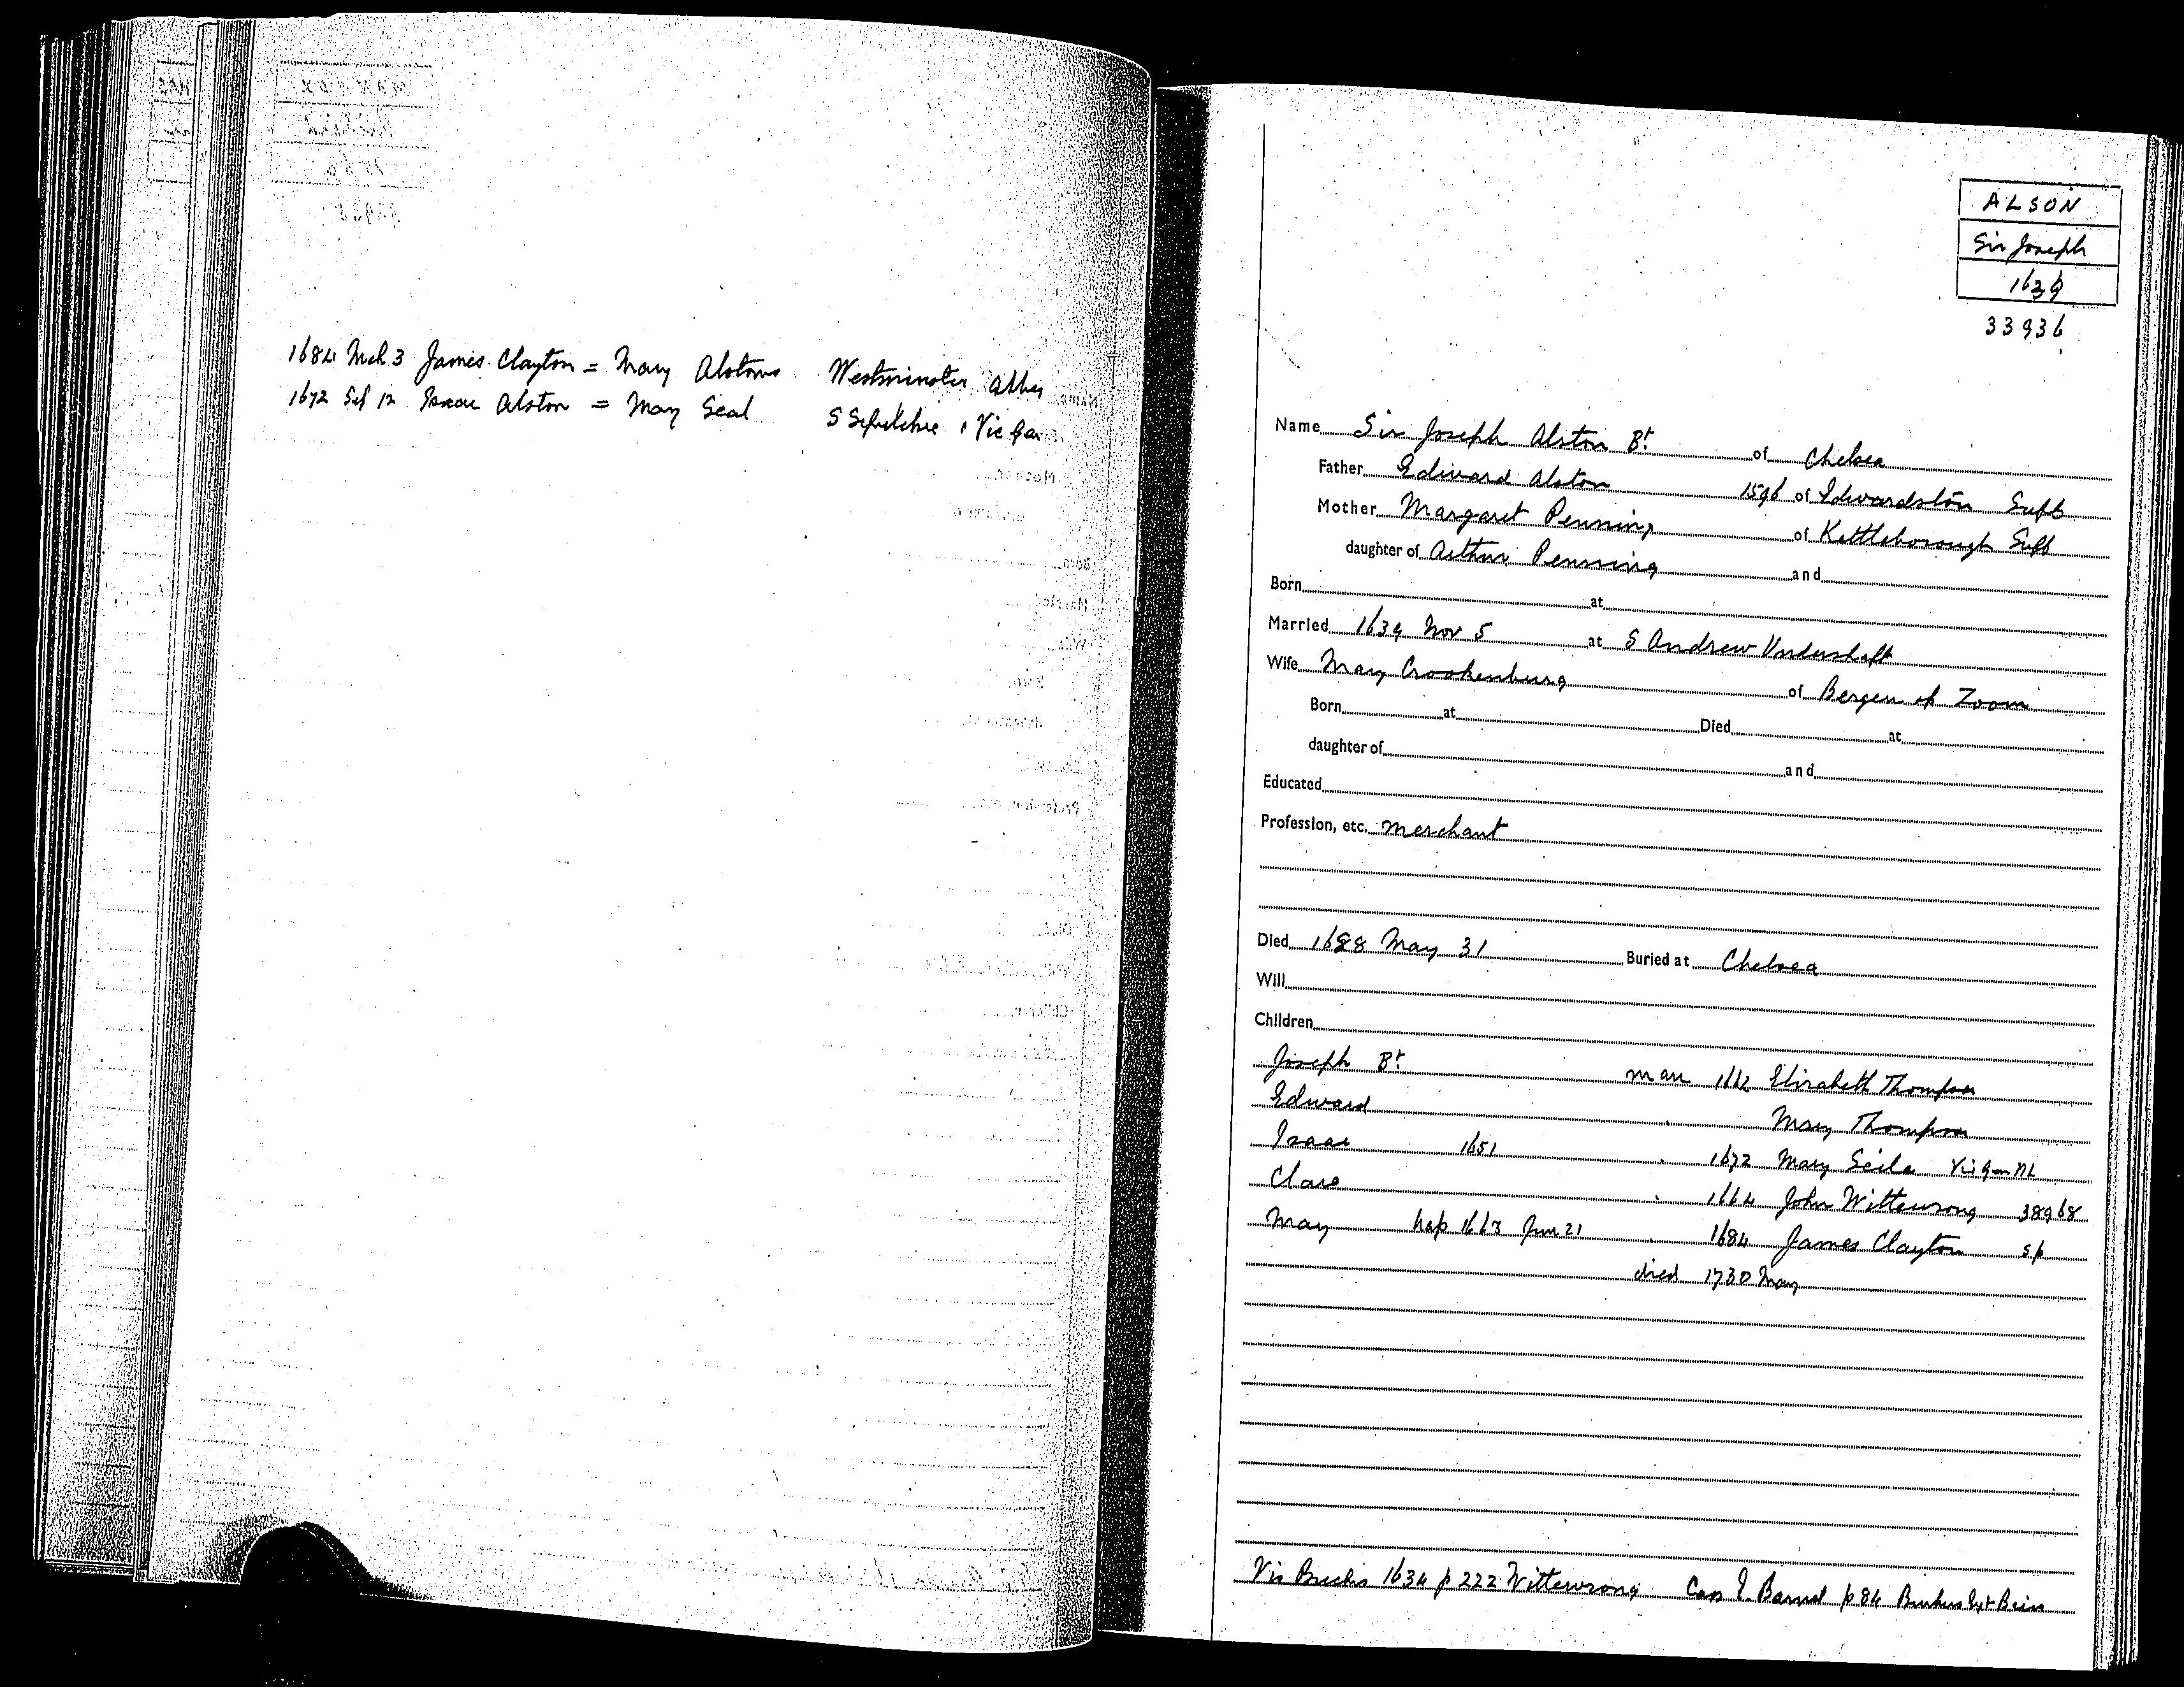 1684 Mch 3 James Clayton = Mary Alstone Westminster Abbey
1672 Sep 12 Isaac Alston = Mary Seal S Sepulchre , Vic Gen
ALSON
Sir Joseph
1639
33936
Name Sir Joseph Alston Bt. of Chelsea
Father Edward Alston 1596 of Edwardston Suff
Mother Margaret Penning of Kettleborough Suff
daughter of Arthur Penning and
Born at
Married 1639 Nov 5 at S Andrew Undershaft
Wife Mary Crookenburg of Bergen op Zoom
Born at Died at
daughter of and
Educated
Profession, etc. merchant
Died 1688 May 31 Buried at Chelsea
Will
Children
Joseph Bt. marr 1662 Elizabeth Thompson
Edward Mary Thompson
Isaac 1651 1672 Mary Seile Vic Gen ML
Clare 1664 John Wittewrong 38968
Mary bap 1663 Jun 21 1684 James Clayton sp
died 1730 May
Vis Bucks 1634 p 222 Wittewrong Cass E. Barnet p 84 Burkes Ext Bts